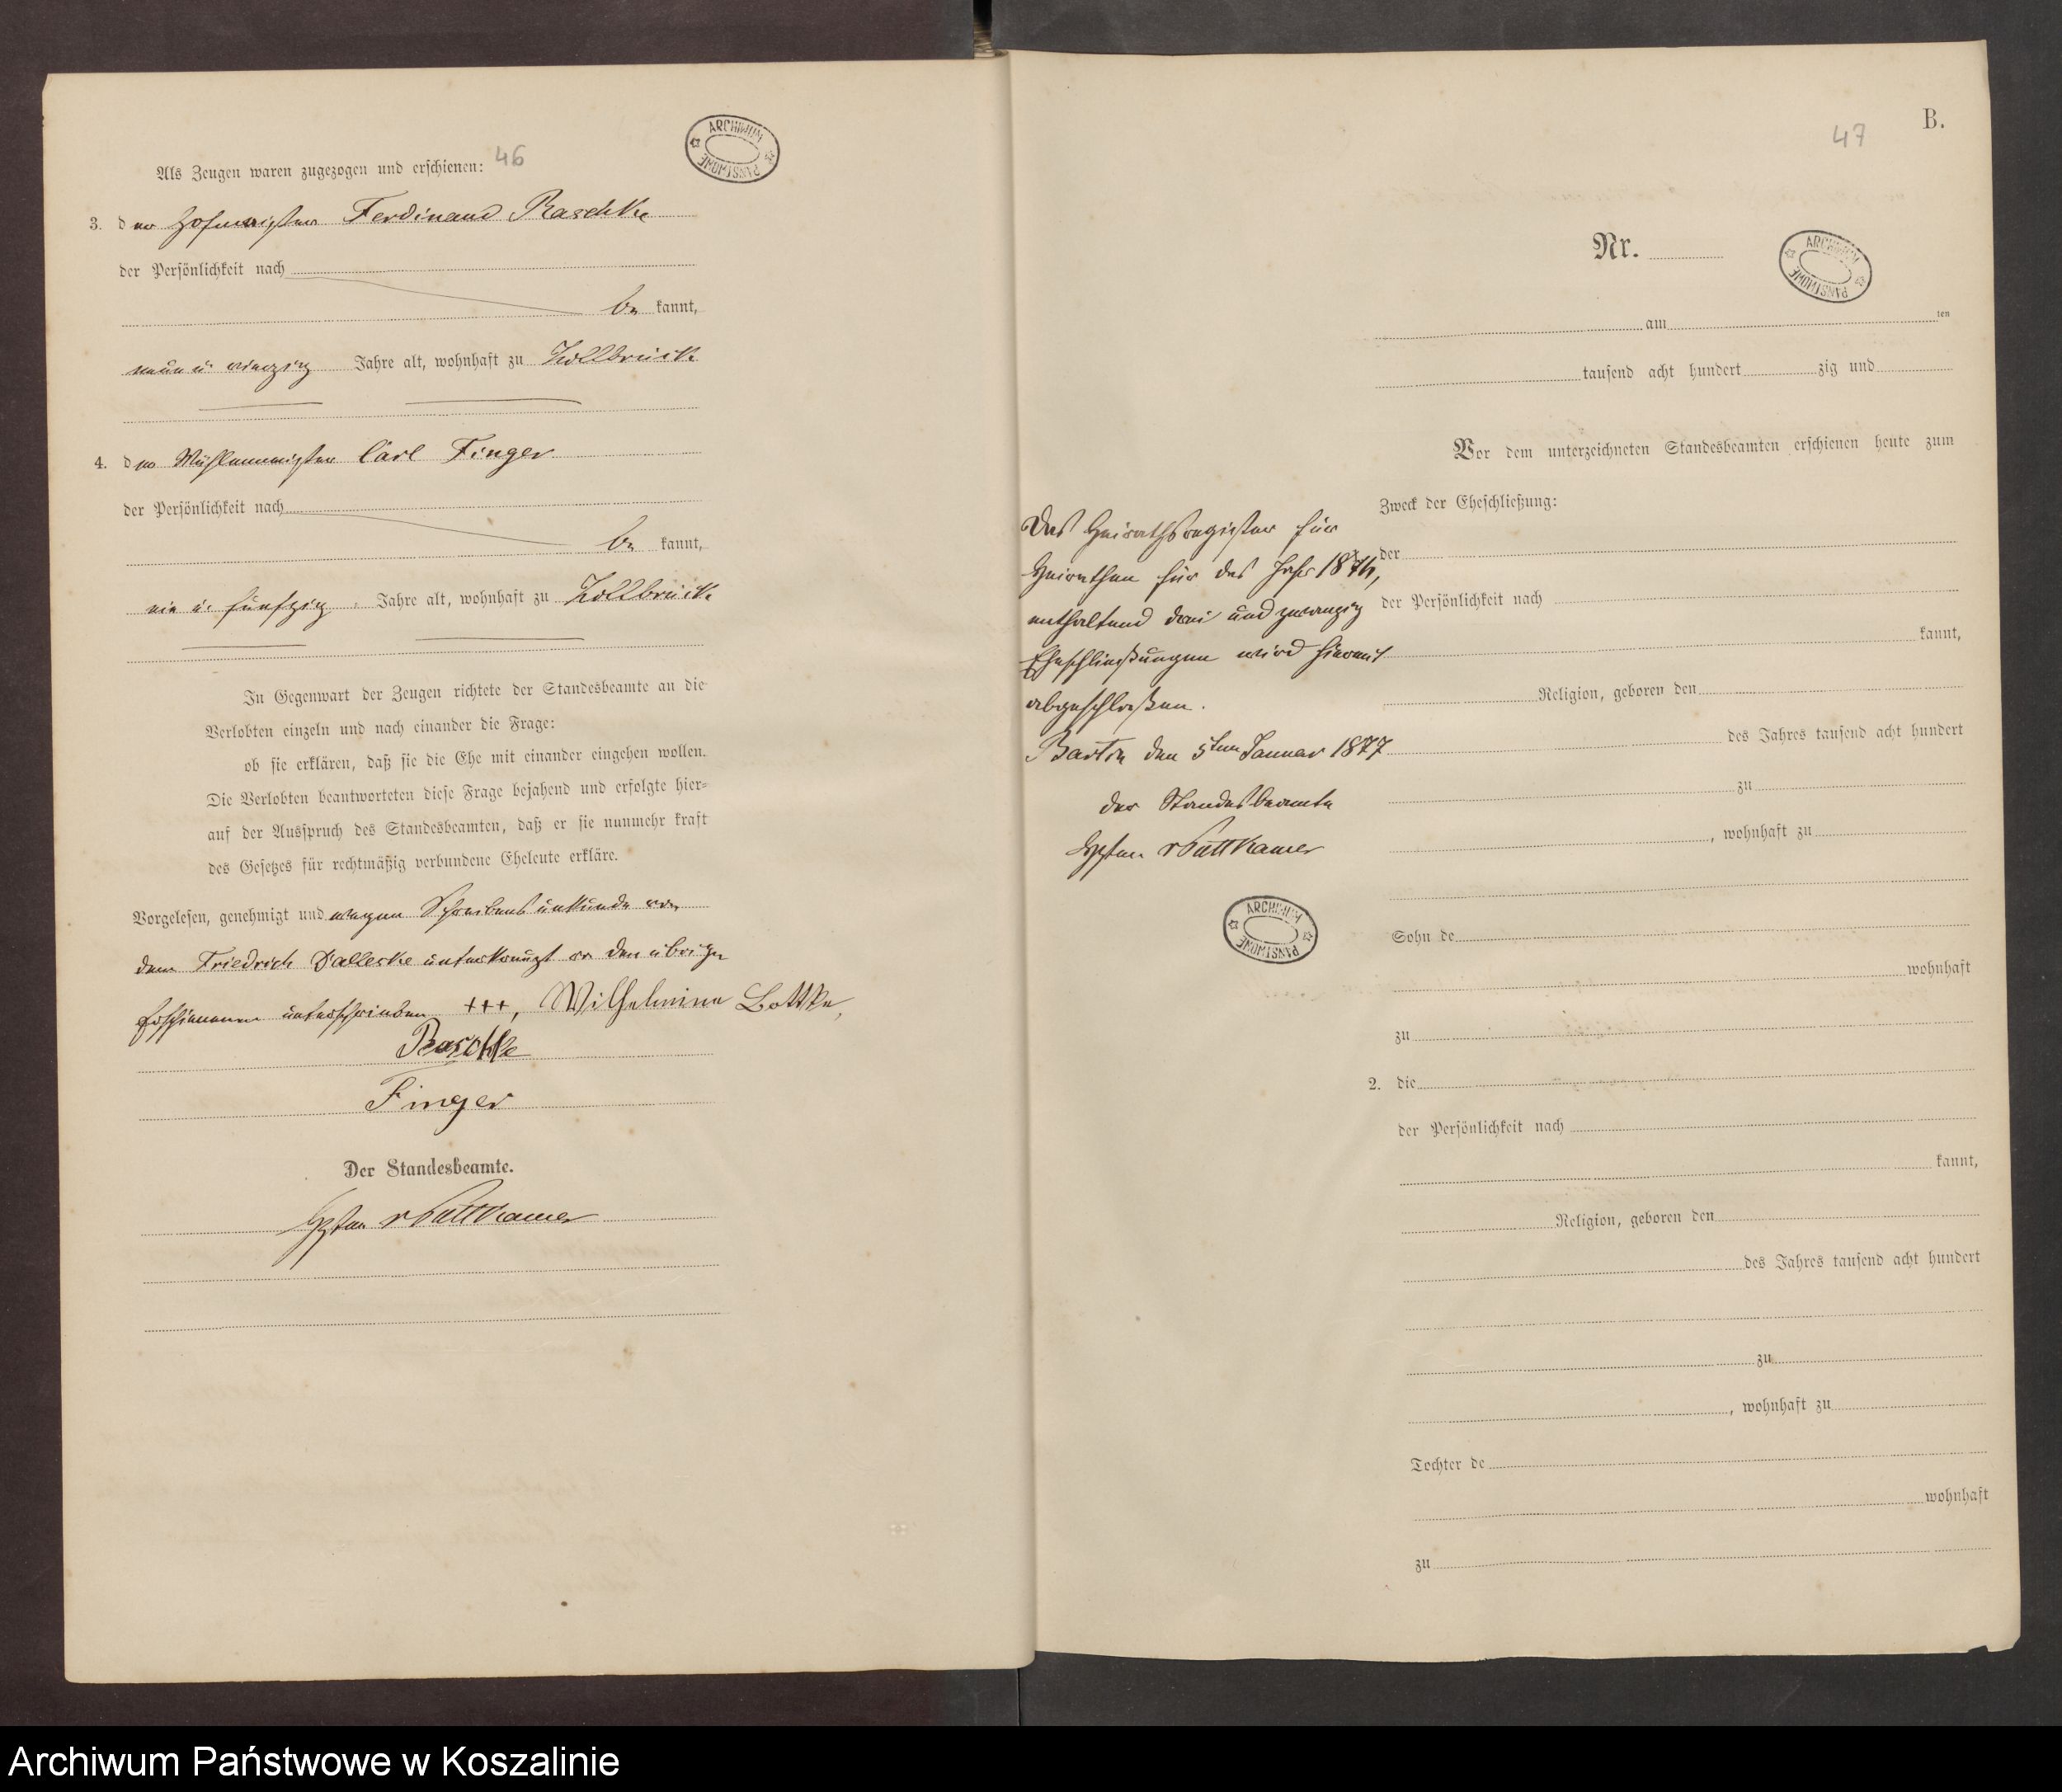 46
ARCHIWUM PAŃSTWOWE
Als Zeugen waren zugezogen und erschienen:
3. der Hofmeister Ferdinand Raschke
der Persönlichkeit nach
be kannt,
neun u. vierzig Jahre alt, wohnhaft zu Zollbrück
4. der Mühlenmeister Carl Finger
der Persönlichkeit nach
be kannt,
ein u. fünfzig Jahre alt, wohnhaft zu Zollbrück
In Gegenwart der Zeugen richtete der Standesbeamte an die
Verlobten einzeln und nach einander die Frage:
ob sie erklären, daß sie die Ehe mit einander eingehen wollen.
Die Verlobten beantworteten diese Frage bejahend und erfolgte hier=
auf der Ausspruch des Standesbeamten, daß er sie nunmehr kraft
des Gesetzes für rechtmäßig verbundene Eheleute erkläre.
Vorgelesen, genehmigt und wegen Schreibensunkunde von
dem Friedrich unterkreuzt von den übrigen
Erschienenen unterschrieben +++, Wilhelmine Bottke,
Raschke
Finger
Der Standesbeamte.
v Puttkamer
47
B.
Nr.
ARCHIWUM PAŃSTWOWE
am ten
tausend acht hundert zig und
Vor dem unterzeichneten Standesbeamten erschienen heute zum
Zweck der Eheschließung:
der
der Persönlichkeit nach
kannt,
Religion, geboren den
des Jahres tausend acht hundert
zu
, wohnhaft zu
Sohn de
wohnhaft
zu
2. die
der Persönlichkeit nach
kannt,
Religion, geboren den
des Jahres tausend acht hundert
zu
, wohnhaft zu
Tochter de
wohnhaft
zu
Das Heirathsregister für
Heirathen für das Jahr 1876,
enthaltend drei und zwanzig
Eheschließungen wird hiermit
abgeschloßen.
Bartin den 5ten Januar 1877
der Standesbeamte
v Puttkamer
ARCHIWUM PAŃSTWOWE
Archiwum Państwowe w Koszalinie